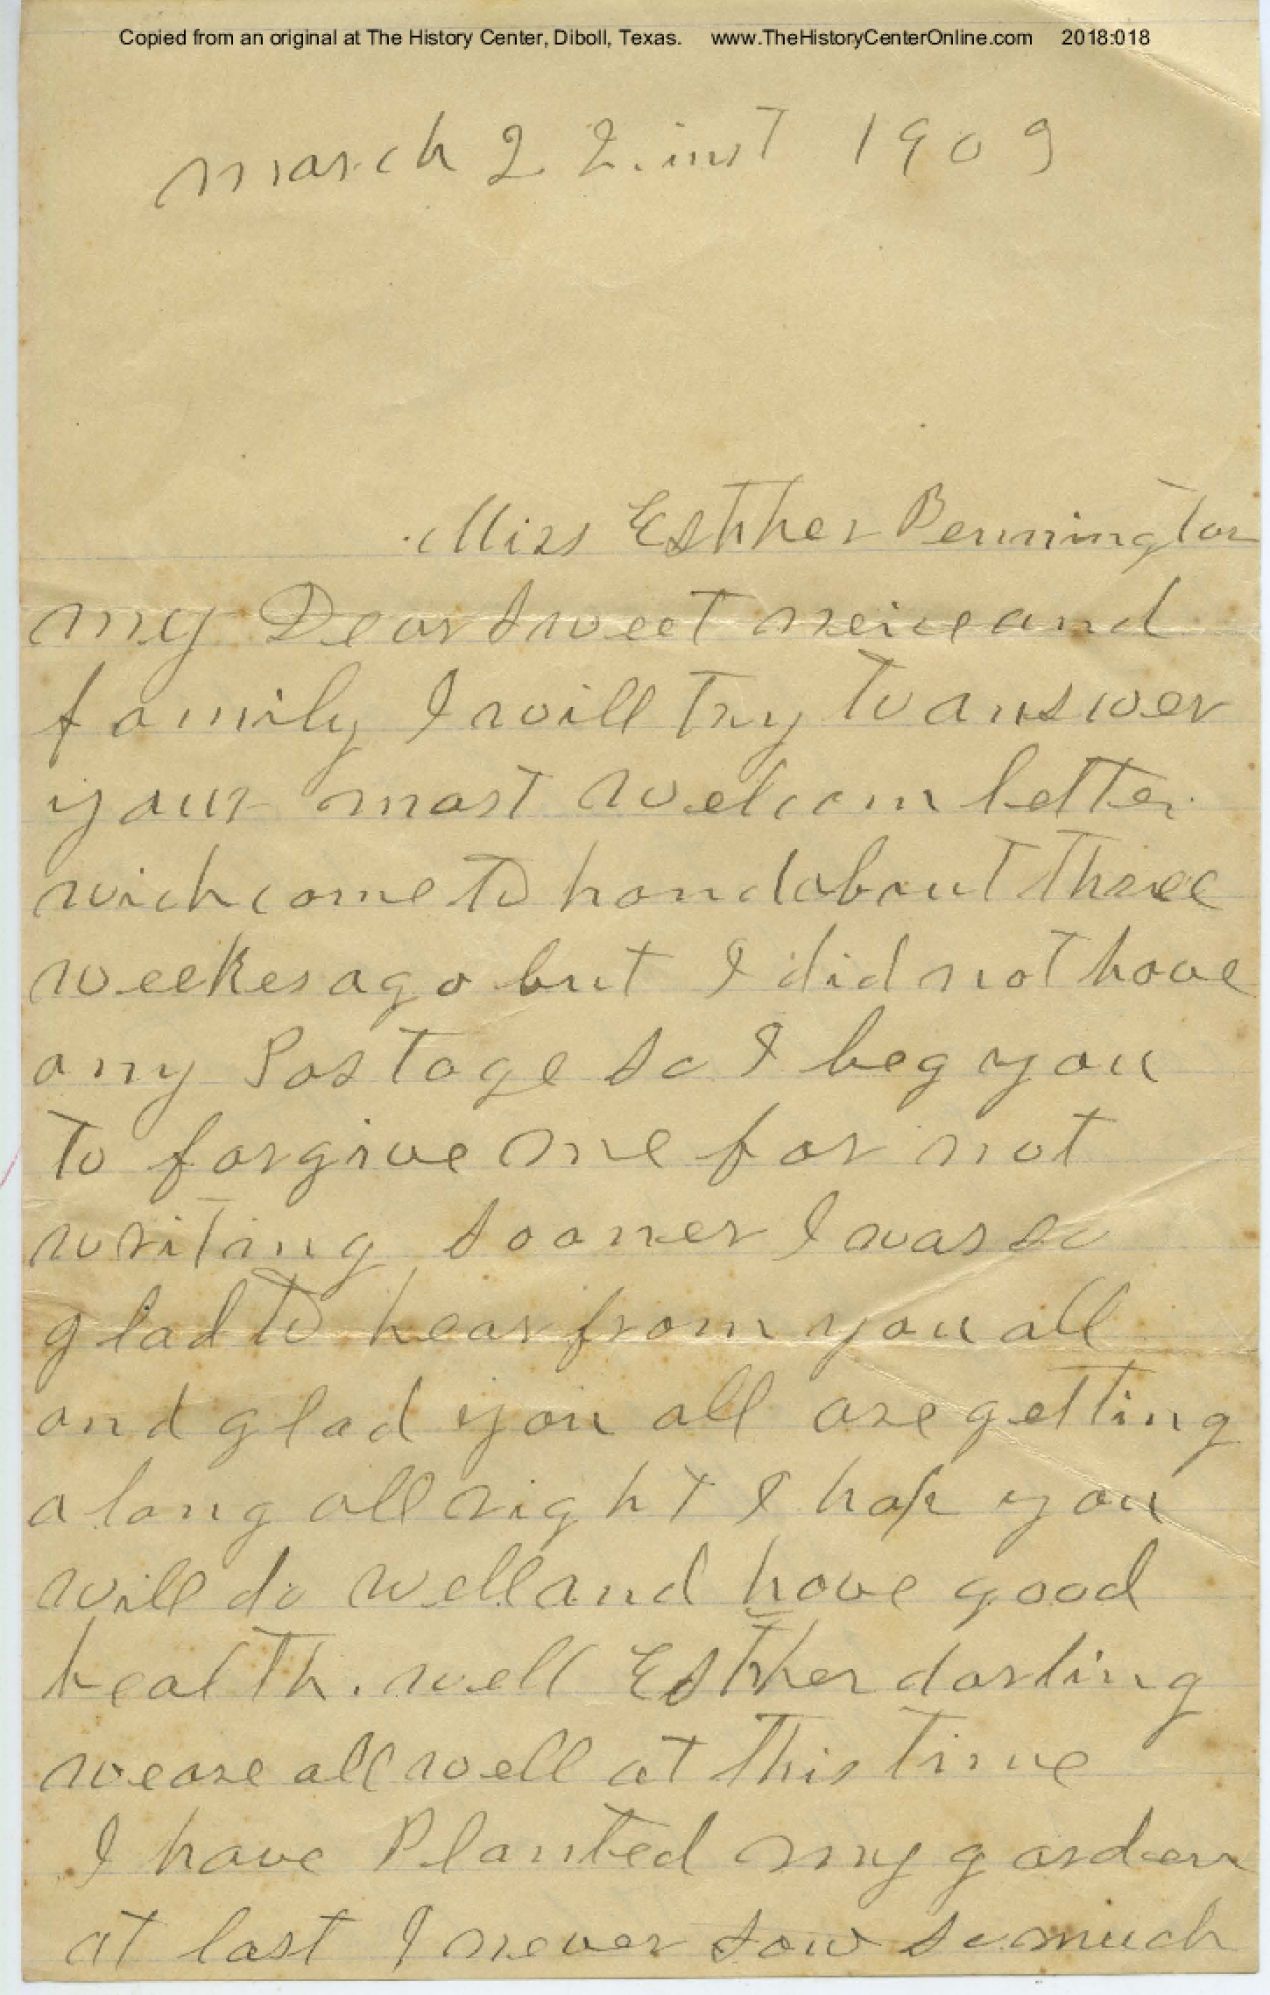 Copied from an original at The History Center, Diboll, Texas. www.TheHistoryCenterOnline.com 2018:018
march 22. inst 1909
Miss Esther Pennington
my Dear sweet neice and
family I will try to answer
your most welcom letter
wich come to hand about three
weekes ago but I did not have
any Postage so I beg you
to forgive me for not
writing sooner I was so
glad to hear from you all
and glad you all are getting
along all right I hope you
will do well and have good
health. well Esther darling
we are all well at this time
I have Planted my garden
at last I never saw so much